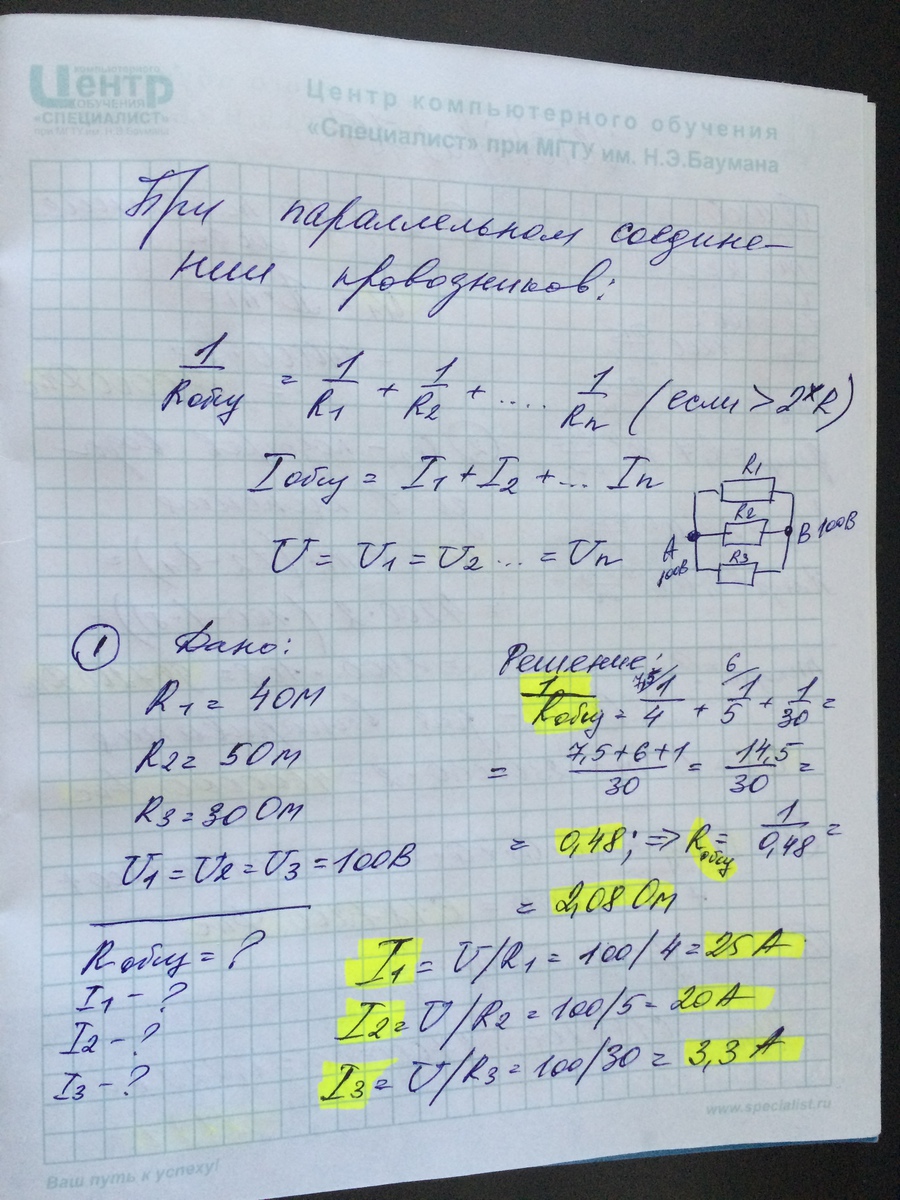 компьютерного
Центр
ОБУЧЕНИЯ
«СПЕЦИАЛИСТ»
при МГТУ им. Н.Э.Баумана
Центр компьютерного обучения
«Специалист» при МГТУ им. Н.Э.Баумана
При параллельном соедине-
нии проводников:
1/Rобщ = 1/R1 + 1/R2 + .... 1/Rn (если > 2xR)
Iобщ = I1 + I2 + ... In
U = U1 = U2 ... = Un
R1
R2
R3
A
100В
B 100В
1 Дано:
R1 = 4 Ом
R2 = 5 Ом
R3 = 30 Ом
U1 = U2 = U3 = 100В
Rобщ = ?
I1 - ?
I2 - ?
I3 - ?
Решение:
1/Rобщ = 7,5/ 1/4 + 6/ 1/5 + 1/30 =
= 7,5+6+1/30 = 14,5/30 =
= 0,48; => Rобщ = 1/0,48 =
= 2,08 Ом
I1 = U/R1 = 100/4 = 25 А
I2 = U/R2 = 100/5 = 20 А
I3 = U/R3 = 100/30 = 3,3 А
www.specialist.ru
Ваш путь к успеху!